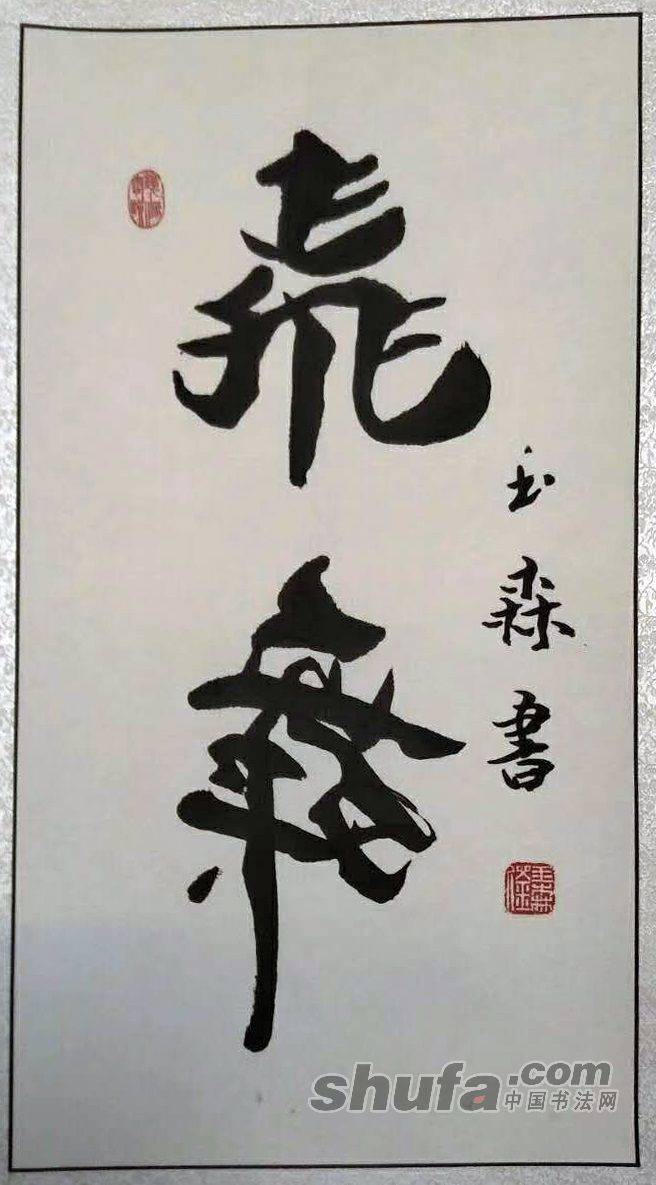 飛
舞
玉森書
shufa.com
中国书法网